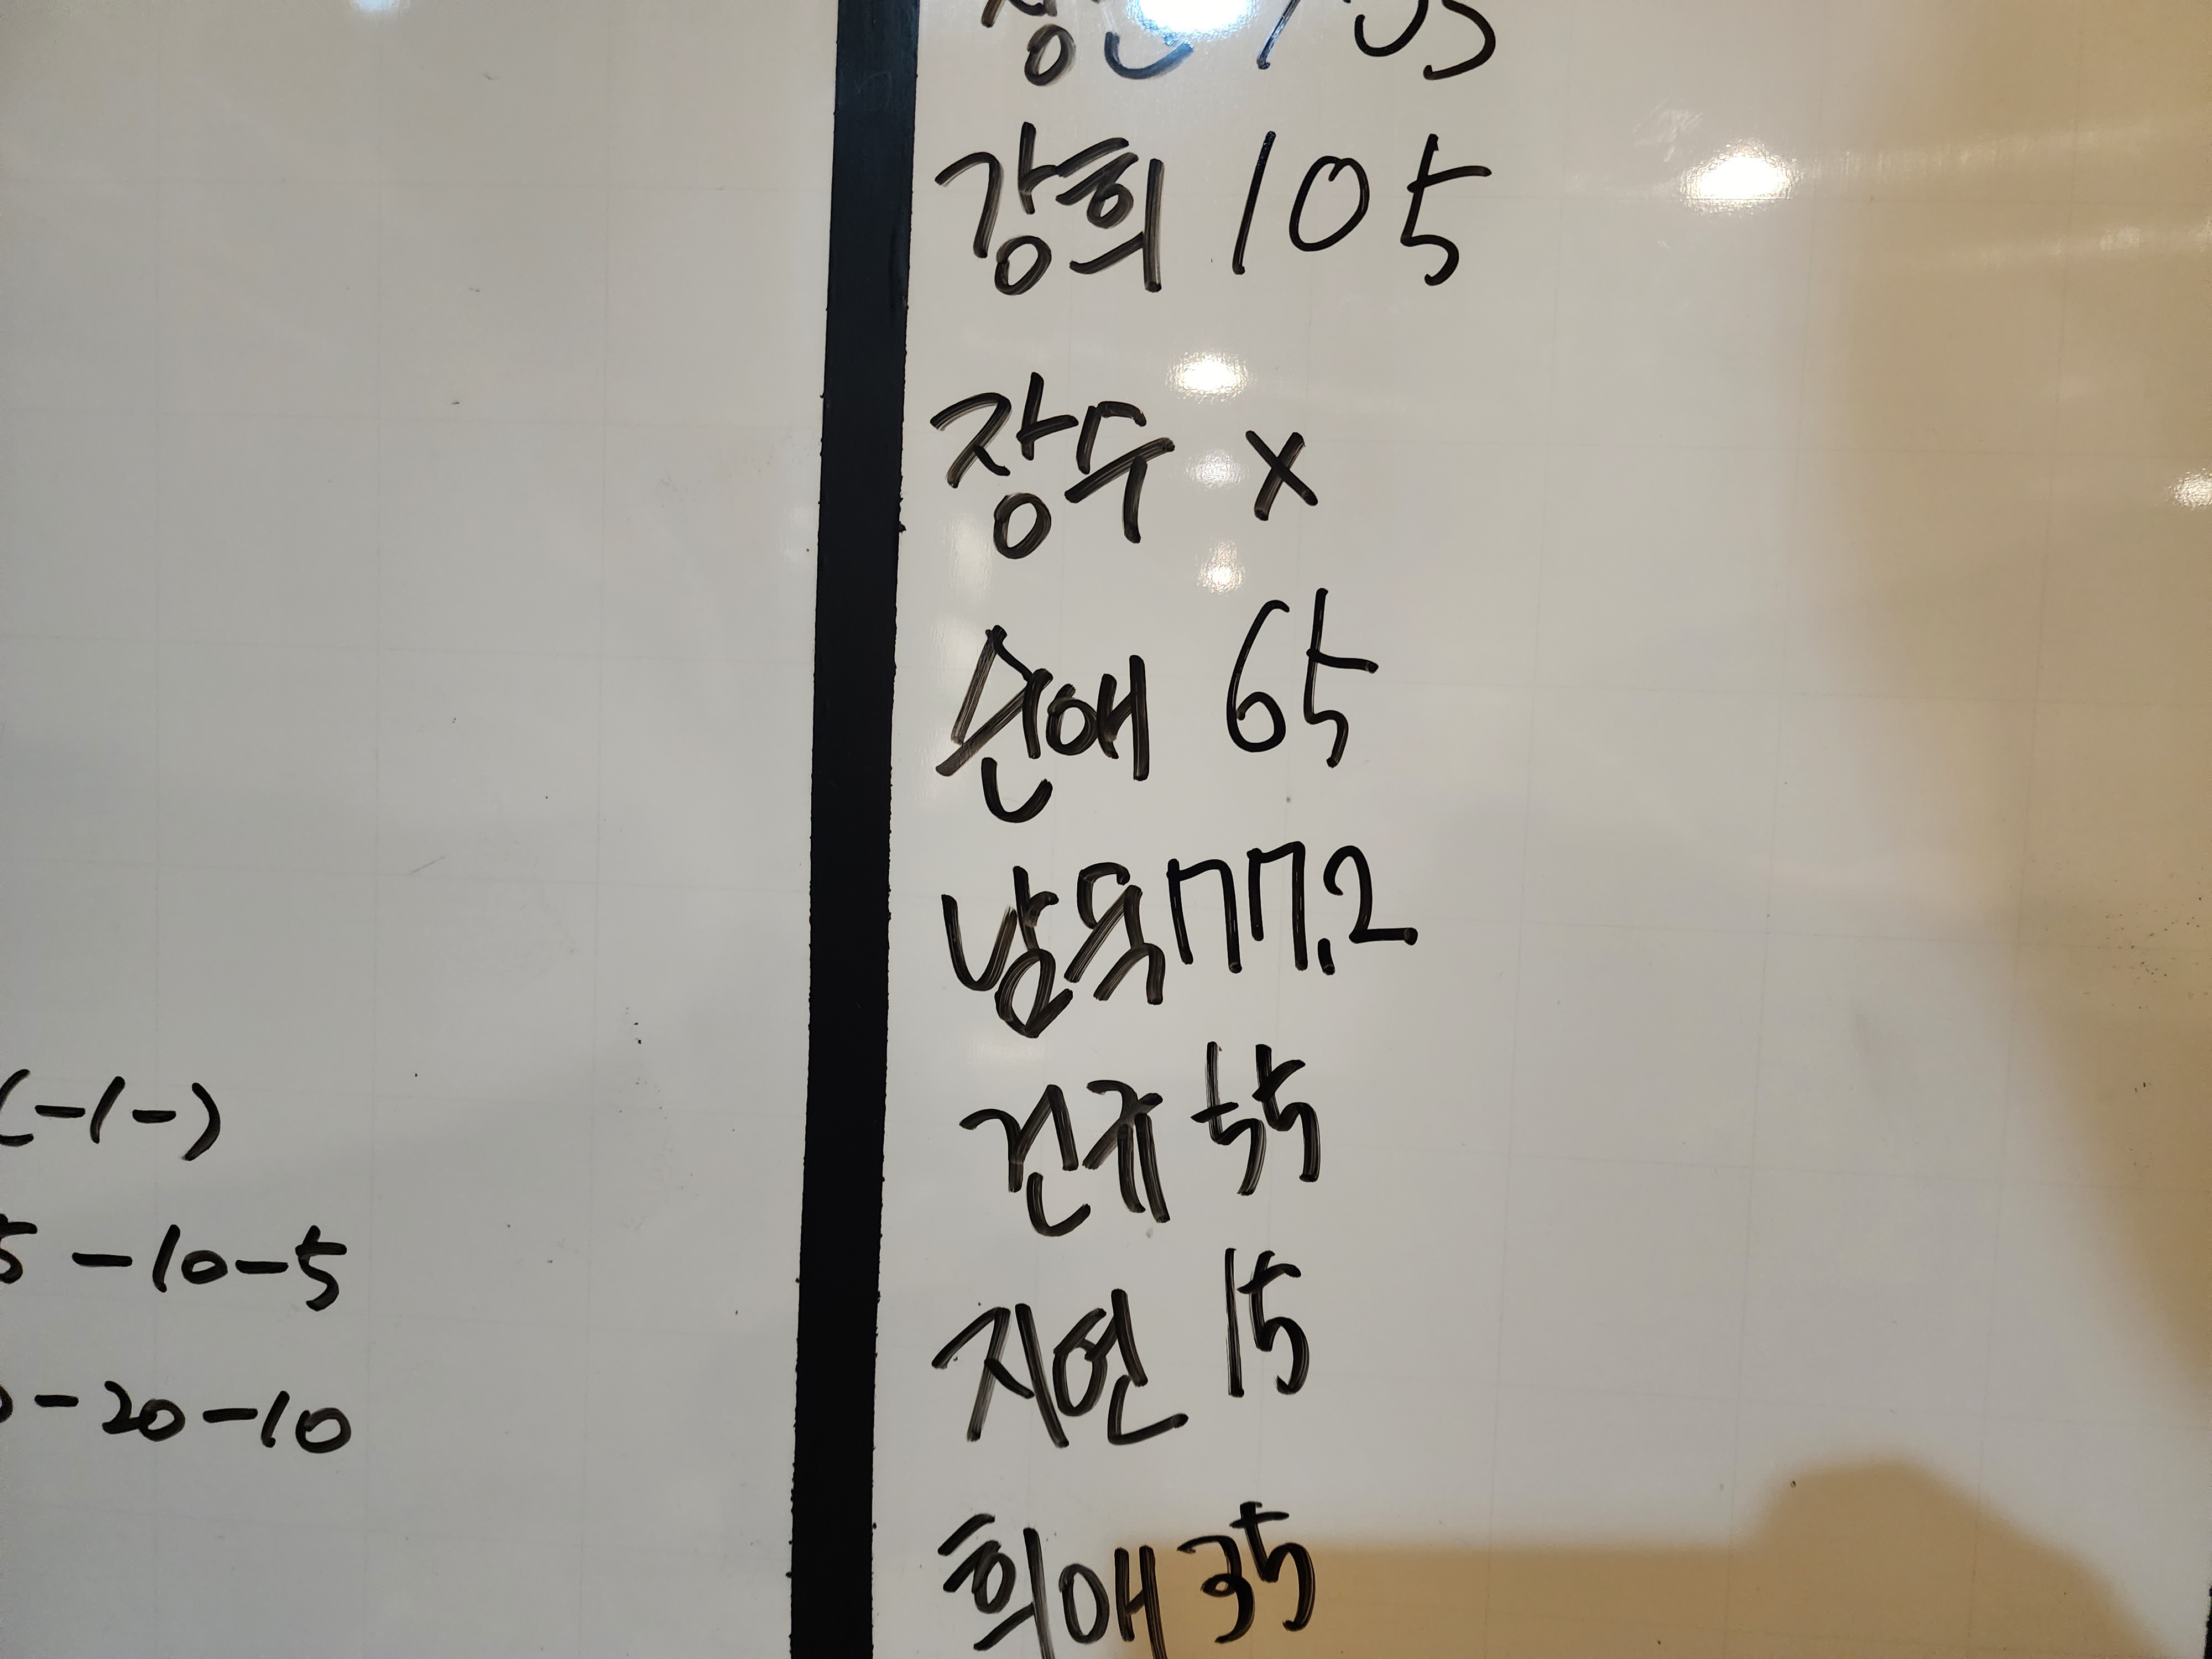 (-1-)
5-10-5
-20-10
105
강희 105
장두 x
순애 65
남욱 77.2
진규 55
지연 15
희애 35